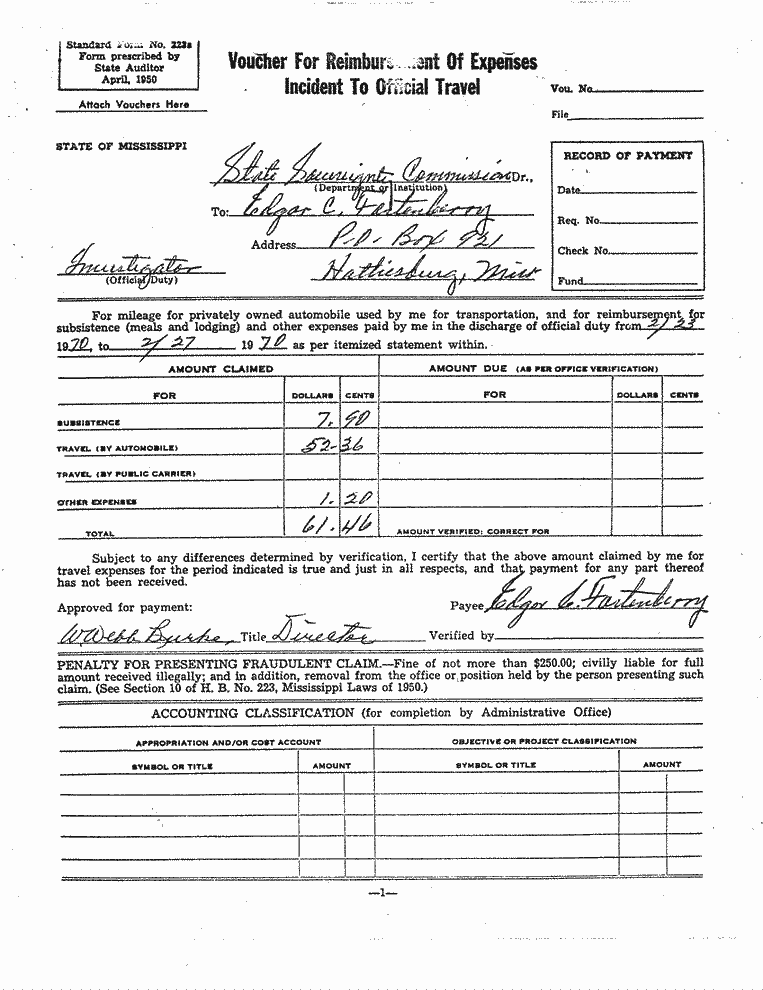 Standard Form No. 223a
Form prescribed by
State Auditor
April, 1950
Attach Vouchers Here
Voucher For Reimburs ent Of Expenses
Incident To Official Travel
Vou. No.
File
STATE OF MISSISSIPPI
State Sovereignty Commission Dr.,
(Department or Institution)
To: Edgar C. Fortenberry
Address P.O. Box 921
Investigator
(Official Duty)
Hattiesburg, Miss
RECORD OF PAYMENT
Date
Req. No.
Check No.
Fund
For mileage for privately owned automobile used by me for transportation, and for reimbursement for
subsistence (meals and lodging) and other expenses paid by me in the discharge of official duty from 2/23
1970, to 2/27 1970 as per itemized statement within.
AMOUNT CLAIMED AMOUNT DUE (AS PER OFFICE VERIFICATION)
FOR DOLLARS CENTS FOR DOLLARS CENTS
SUBSISTENCE 7.90
TRAVEL (BY AUTOMOBILE) 52-36
TRAVEL (BY PUBLIC CARRIER)
OTHER EXPENSES 1.20
TOTAL 61.46 AMOUNT VERIFIED: CORRECT FOR
Subject to any differences determined by verification, I certify that the above amount claimed by me for
travel expenses for the period indicated is true and just in all respects, and that payment for any part thereof
has not been received.
Approved for payment: Payee Edgar C. Fortenberry
W. Webb Burke, Title Director Verified by
PENALTY FOR PRESENTING FRAUDULENT CLAIM.—Fine of not more than $250.00; civilly liable for full
amount received illegally; and in addition, removal from the office or position held by the person presenting such
claim. (See Section 10 of H. B. No. 223, Mississippi Laws of 1950.)
ACCOUNTING CLASSIFICATION (for completion by Administrative Office)
APPROPRIATION AND/OR COST ACCOUNT OBJECTIVE OR PROJECT CLASSIFICATION
SYMBOL OR TITLE AMOUNT SYMBOL OR TITLE AMOUNT
—1—